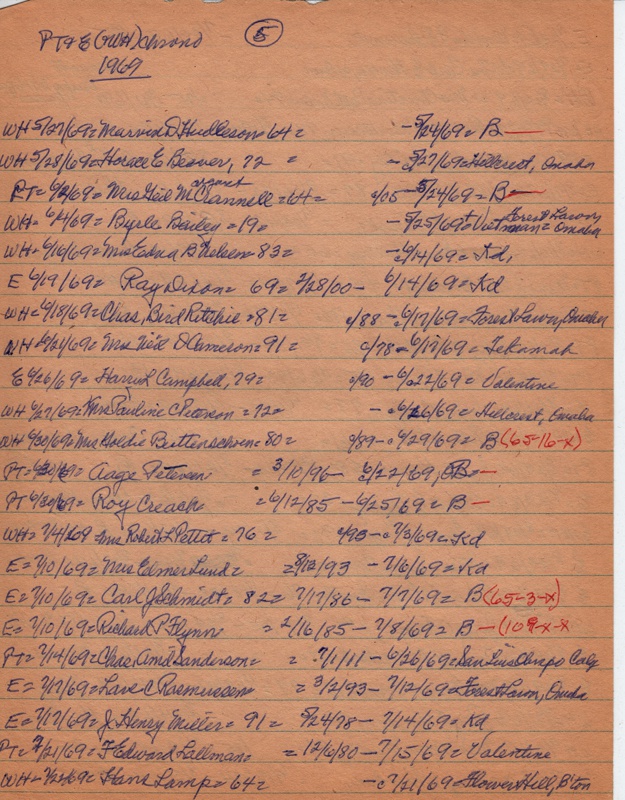 PT & E (+WH) Chrono (5)
1969
WH 5/27/69 = Marvin D Hudleson = 64 = - 5/24/69 = B —
WH 5/28/69 = Horace E Beaver, 72 = - 5/27/69 = Hillcrest, Omaha
PT = 6/2/69 = Mrs Neil M = 64 = c/05 - 5/24/69 = B —
WH = 6/4/69 = Byrle Bailey = 19 = - 5/25/69 = Vietnam = Forest Lawn Omaha
WH = 6/16/69 = Mrs Edna B Nelsen = 83 = - 6/14/69 = Kd,
E 6/19/69 = Ray Dixon = 69 = 2/28/00 - 6/14/69 = Kd
WH = 6/18/69 = Chas, Bird Ritchie = 81 = c/88 - 6/17/69 = Forest Lawn, Omaha
WH = 6/21/69 = Mrs Neil D Cameron = 91 = c/78 - 6/19/69 = Tekamah
E 6/26/69 = Harry L Campbell, 79 = c/90 - 6/22/69 = Valentine
WH 6/27/69 = Mrs Pauline C Peterson = 72 = - 6/26/69 = Hillcrest, Omaha
WH 6/30/69 = Mrs Goldie Buttenschoen = 80 = c/89 - 6/29/69 = B (65-16-x)
PT = 6/30/69 = Aage Petersen = 3/10/96 - 6/22/69, B —
PT 6/30/69 = Roy Creach = 6/12/85 - 6/25/69 = B —
WH = 7/4/69 = Mrs Robert L Pettit = 76 = c/93 - 7/3/69 = Kd
E = 7/10/69 = Mrs Elmer Lund = /93 - 7/6/69 = Kd
E = 7/10/69 = Carl J Schmidt = 82 = 7/17/86 - 7/7/69 = B (65-3-x)
E = 7/10/69 = Richard P. Flynn = 2/16/85 - 7/8/69 = B — (109-x-x
PT = 7/14/69 = Chas, Amd Sanderson = = 7/1/11 - 6/26/69 = San Luis Obispo Calif
E = 7/17/69 = Lars C Rasmussen = 3/2/93 - 7/12/69 = Forest Lawn, Omaha
E = 7/17/69 = J. Henry Mieter = 91 = 5/24/78 - 7/14/69 = Kd
PT = 7/21/69 = F Edward Lallman = = 12/6/80 - 7/15/69 = Valentine
WH = 7/22/69 = Hans Lamp = 64 = - 7/21/69 = Flower Hill, B'ton